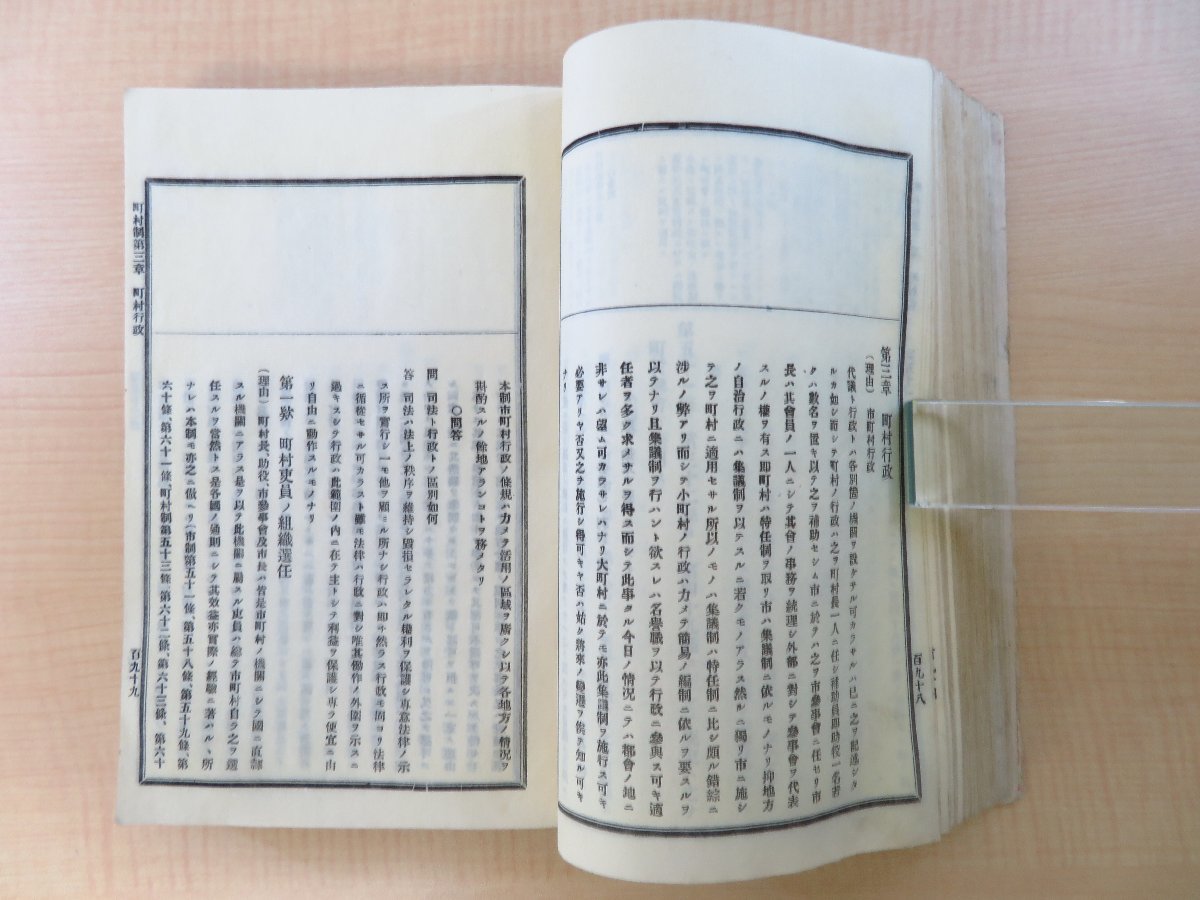 第三章　町村行政
（理由）　市町村行政
代議ト行政トハ各別箇ノ機關ヲ設ケサル可カラサルハ已ニ之ヲ記述シタ
ルカ如シ而シテ町村ノ行政ハ之ヲ町村長一人ニ任シ補助員即助役一名若
クハ數名ヲ置キ以テ之ヲ補助セシム市ニ於テハ之ヲ市參事會ニ任セリ市
長ハ其會員ノ一人ニシテ其會ノ事務ヲ統理シ外部ニ對シテ參事會ヲ代表
スルノ權ヲ有ス即町村ハ特任制ヲ取リ市ハ集議制ニ依ルモノナリ抑地方
ノ自治行政ニハ集議制ヲ以テスルニ若クモノアラス然ルニ獨リ市ニ施シ
テ之ヲ町村ニ適用セサル所以ノモノハ集議制ハ特任制ニ比シ頗ル錯綜ニ
涉ルノ弊アリ而シテ小町村ノ行政ハ力メテ簡易ノ編制ニ依ルヲ要スルヲ
以テナリ且集議制ヲ行ハント欲スレハ名譽職ヲ以テ行政ニ參與ス可キ適
任者ヲ多ク求メサルヲ得ス而シテ此事タル今日ノ情況ニテハ都會ノ地ニ
非サレハ望ム可カラサレハナリ大町村ニ於テモ亦此集議制ヲ施行ス可キ
必要アリヤ否又之ヲ施行シ得可キヤ否ハ姑ク將來ノ變遷ヲ俟テ知ル可キ
ナリ
百九十八
本制市町村行政ノ條規ハ力メテ活用ノ區域ヲ廣クシ以テ各地方ノ情況ヲ
斟酌スルノ餘地アランコトヲ務メタリ
〇問答
問　司法ト行政トノ區別如何
答　司法ハ法上ノ秩序ヲ維持シ毀損セラレタル權利ヲ保護シ專意法律ノ示
ス所ヲ實行シ一モ他ヲ顧ミル所ナシ行政ハ即チ然ラス行政モ固ヨリ法律
ニ循從セサル可カラスト雖モ法律ハ行政ニ對シ唯其働作ノ外圍ヲ示スニ
過キスシテ行政ハ此範圍ノ内ニ在テ主トシテ利益ヲ保護シ專ラ便宜ニ由
リ自由ニ動作スルモノナリ
第一欵　町村吏員ノ組織選任
（理由）　町村長、助役、市參事會及市長ハ皆是市町村ノ機關ニシテ國ニ直隷
スル機關ニアラス是ヲ以テ此機關ニ屬スル吏員ハ總テ市町村自ラ之ヲ選
任スルヲ當然トス是各國ノ通則ニシテ其效益亦實際ノ經驗ニ著ハルヽ所
ナレハ本制モ亦之ニ倣ヘリ（市制第五十一條、第五十八條、第五十九條、第
六十條、第六十一條、町村制第五十三條、第六十二條、第六十三條、第六十
町村制第三章　町村行政
百九十九